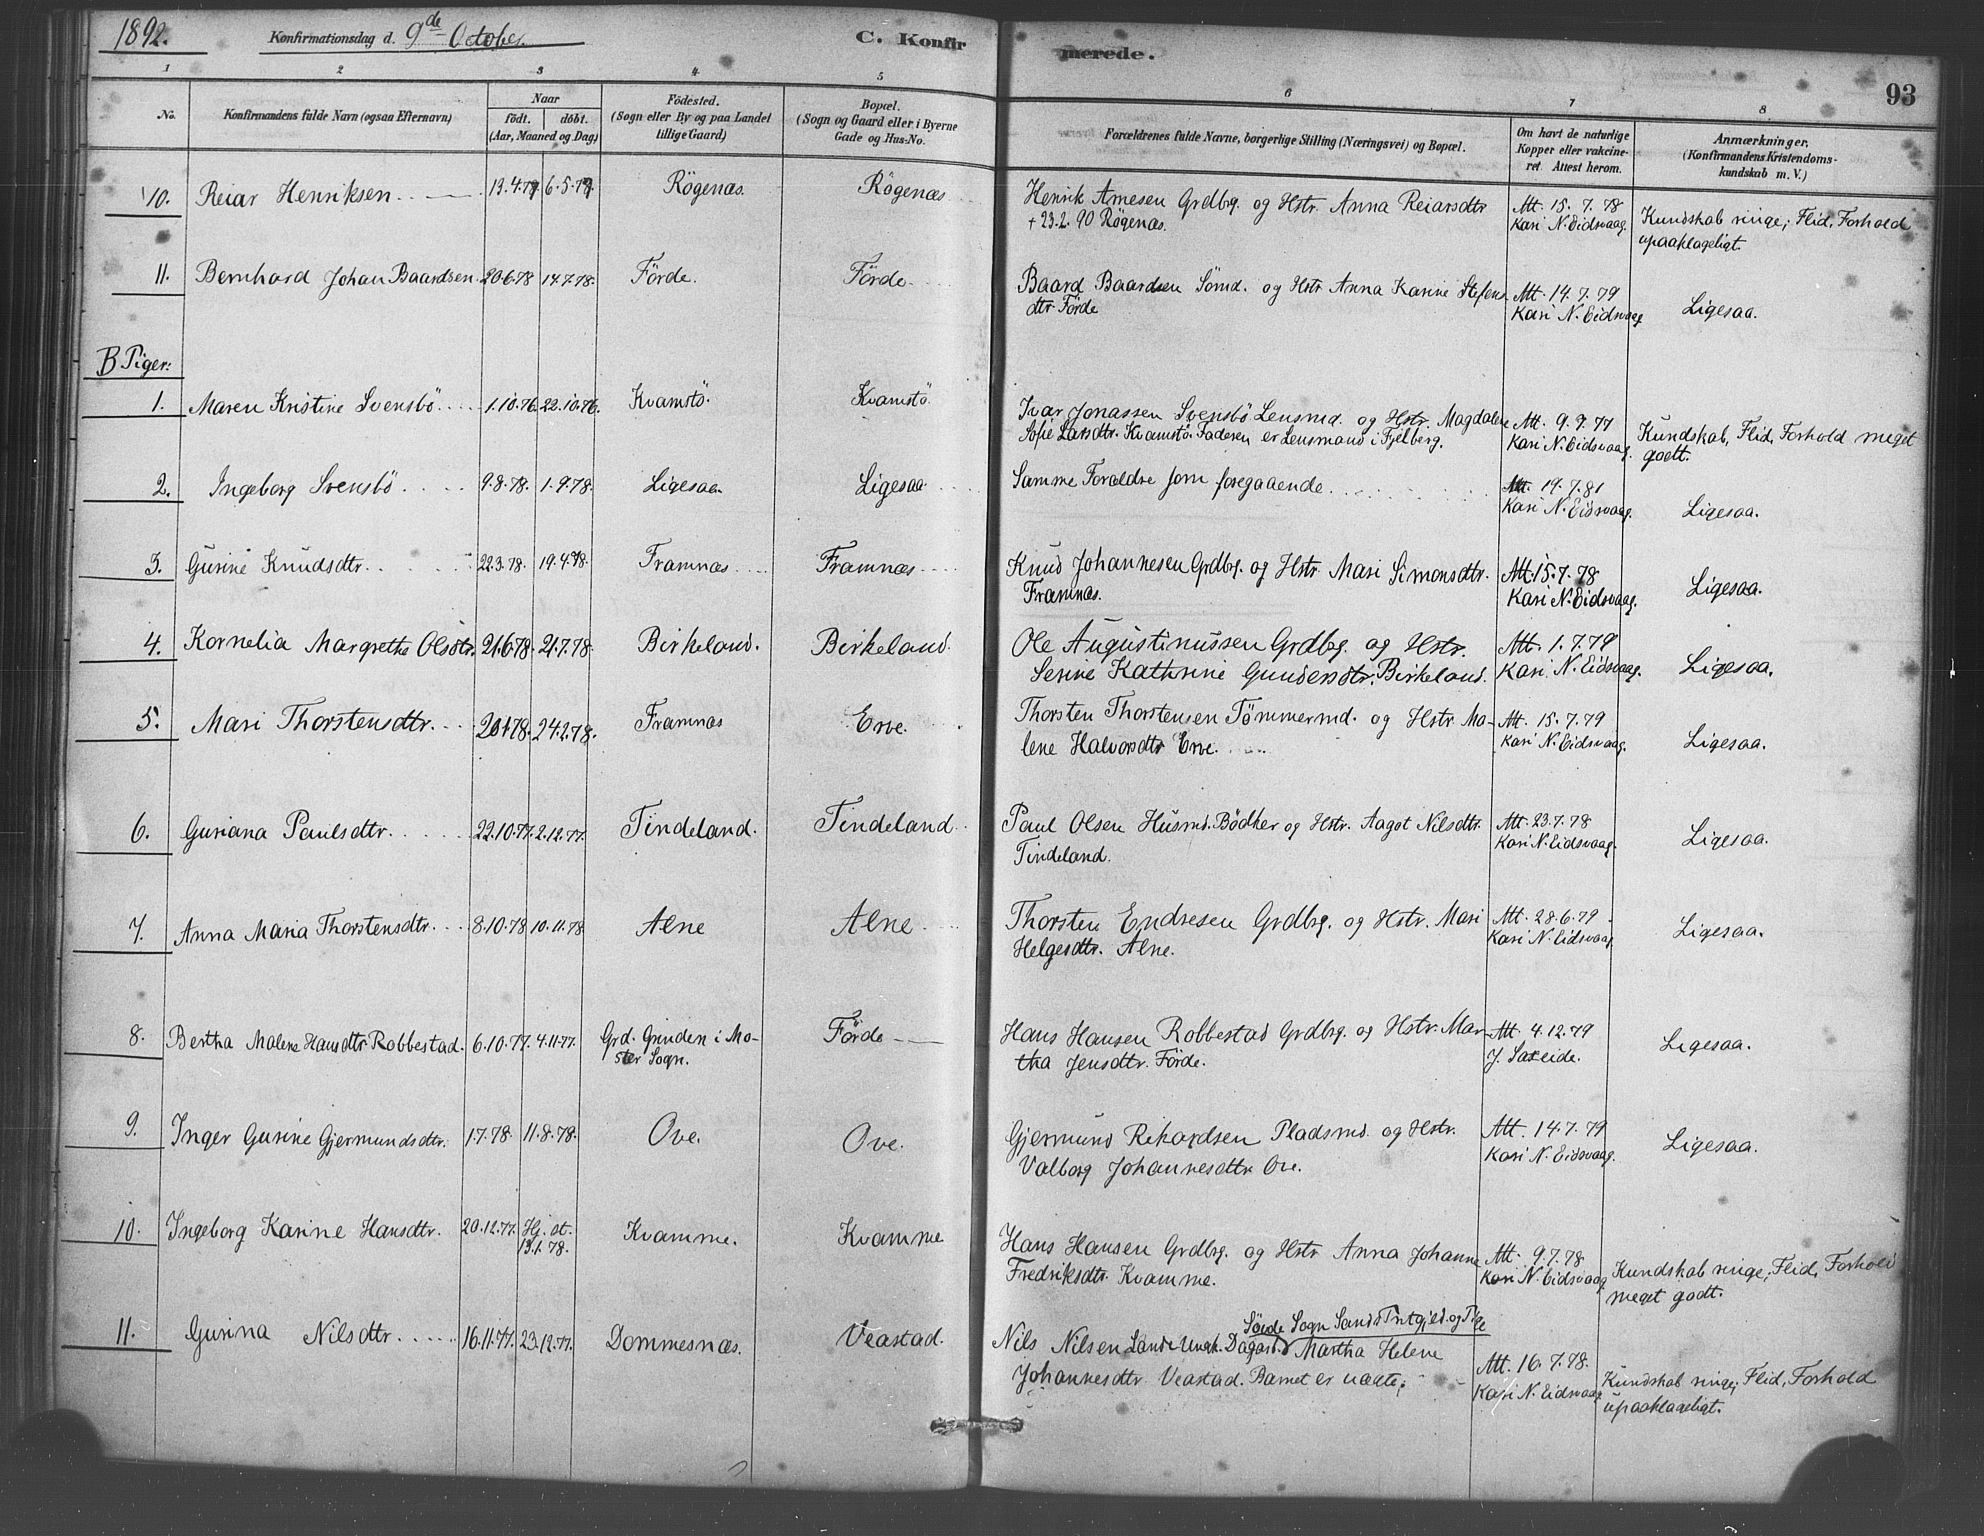 1892. Konfirmationsdag d. 9de October. C. Konfirmerede. 93
1 2 3 4 5 6 7 8
No. Konfirmandens fulde Navn (ogsaa Efternavn) Naar födt. döbt. (Aar, Maaned og Dag) Födested. (Sogn eller By og paa Landet tillige Gaard) Bopæl. (Sogn og Gaard eller i Byerne Gade og Hus-No. Forældrenes fulde Navne, borgerlige Stilling (Næringsvei) og Bopæl. Om havt de naturlige Kopper eller vakcineret. Attest herom. Anmærkninger. (Konfirmandens Kristendomskundskab m. V.)
10. Reiar Henriksen 13.4.79 6.5.79 Rögenæs. Rögenæs Henrik Arnesen Grdbrg. og Hstr. Anna Reiarsdtr Att. 15.7.78 Kundskab ringe; Flid, Forhold
+ 23.2.90 Rögenæs. Kari N. Eidsvaag. upaaklageligt.
11. Bernhard Johan Baardsen 20.6.78 14.7.78. Förde. Förde Baard Baardsen Sömd. og Hstr Anna Karine Stefens Att. 14.7.79 Ligesaa.
dtr Förde Kari N. Eidsvaag
B Piger:
1. Maren Kristine Svensbö 1.10.76. 22.10.76. Kvamstö. Kvamstö Ivar Jonassen Svensbö Lensmd. og Hstr. Magdalene Att. 9.9.77 Kundskab, Flid, Forhold meget
Sofie Larsdtr. Kvamstö. Faderen er Lensmand i Fjelberg. Kari N. Eidsvaag. godt.
2. Ingeborg Svensbö 9.8.78. 1.9.78. Ligesaa. Ligesaa Samme Forældre som foregaaende Att. 19.7.81 Ligesaa.
Kari N. Eidsvaag.
3. Gurine Knudsdtr. 22.3.78. 19.4.78. Framnæs Framnæs Knud Johannesen Grdbrg. og Hstr. Mari Simonsdtr. Att. 15.7.78 Ligesaa.
Framnæs. Kari N. Eidsvaag.
4. Kornelia Margrethe Olsdtr. 21.6.78. 21.7.78. Birkeland. Birkeland Ole Augustinussen Grdbrg. og Hstr. Att. 1.7.79 Ligesaa.
Serine Kathrine Gundersdtr. Birkeland. Kari N. Eidsvaag.
5. Mari Thorstensdtr. 20.1.78. 24.2.78. Framnæs Erve. Thorsten Thorstensen Tömmermd. og Hstr. Ma- Att. 15.7.79 Ligesaa.
lene Halvorsdtr Erve. Kari N. Eidsvaag.
6. Guriana Paulsdtr. 22.10.77. 2.12.77. Tindeland. Tindeland Paul Olsen Husmd. Bödker og Hstr. Aagot Nilsdtr. Att. 23.7.78 Ligesaa.
Tindeland. Kari N. Eidsvaag.
7. Anna Maria Thorstensdtr. 8.10.78. 10.11.78 Alne Alne Thorsten Endresen Grdbrg. og Hstr. Mari Att. 28.6.79 Ligesaa.
Helgesdtr. Alne. Kari N. Eidsvaag
8. Bertha Malene Hansdtr Robbestad. 6.10.77. 4.11.77. Grd. Grinden i Mo- Förde Hans Hansen Robbestad Grdbrg. og Hstr. Mar- Att 4.12.79 Ligesaa.
ster Sogn. tha Jensdtr. Förde. J. Saxeide.
9. Inger Gurine Gjermundsdtr. 1.7.78. 11.8.78. Ove. Ove. Gjermund Rikardsen Pladsmd. og Hstr. Att. 14.7.79 Ligesaa.
Valborg Johannesdtr. Ove. Kari N. Eidsvaag.
10. Ingeborg Karine Hansdtr. 20.12.77. Hj. dt. 13.1.78. Kvamme. Kvamme Hans Hansen Grdbrg. og Hstr Anna Johanne Att. 9.7.78 Kundskab ringe; Flid, Forhold
Fredriksdtr. Kvamme. Kari N. Eidsvaag meget godt.
11. Gurina Nilsdtr. 16.11.77. 23.12.77. Dommesnæs. Veastad. Nils Nilsen Sande Ungk. Dagard Söide Sogn Sands Prstgjeld. og Pige Martha Helene Att. 16.7.78. Kundskab ringe; Flid, Forhold
Johannesdtr Veastad. Barnet er uægte. Kari N. Eidsvaag upaaklageligt.